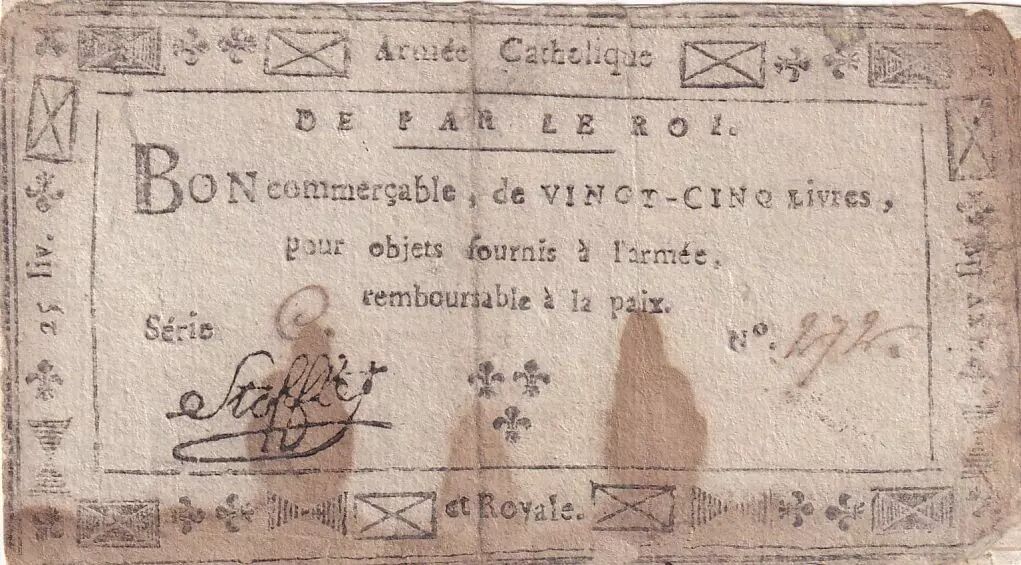 Armée Catholique
DE PAR LE ROI.
BON commerçable, de VINGT-CINQ Livres,
pour objets fournis à l'armée,
remboursable à la paix.
Série C. N°. 272.
Stofflet
et Royale.
25 liv.